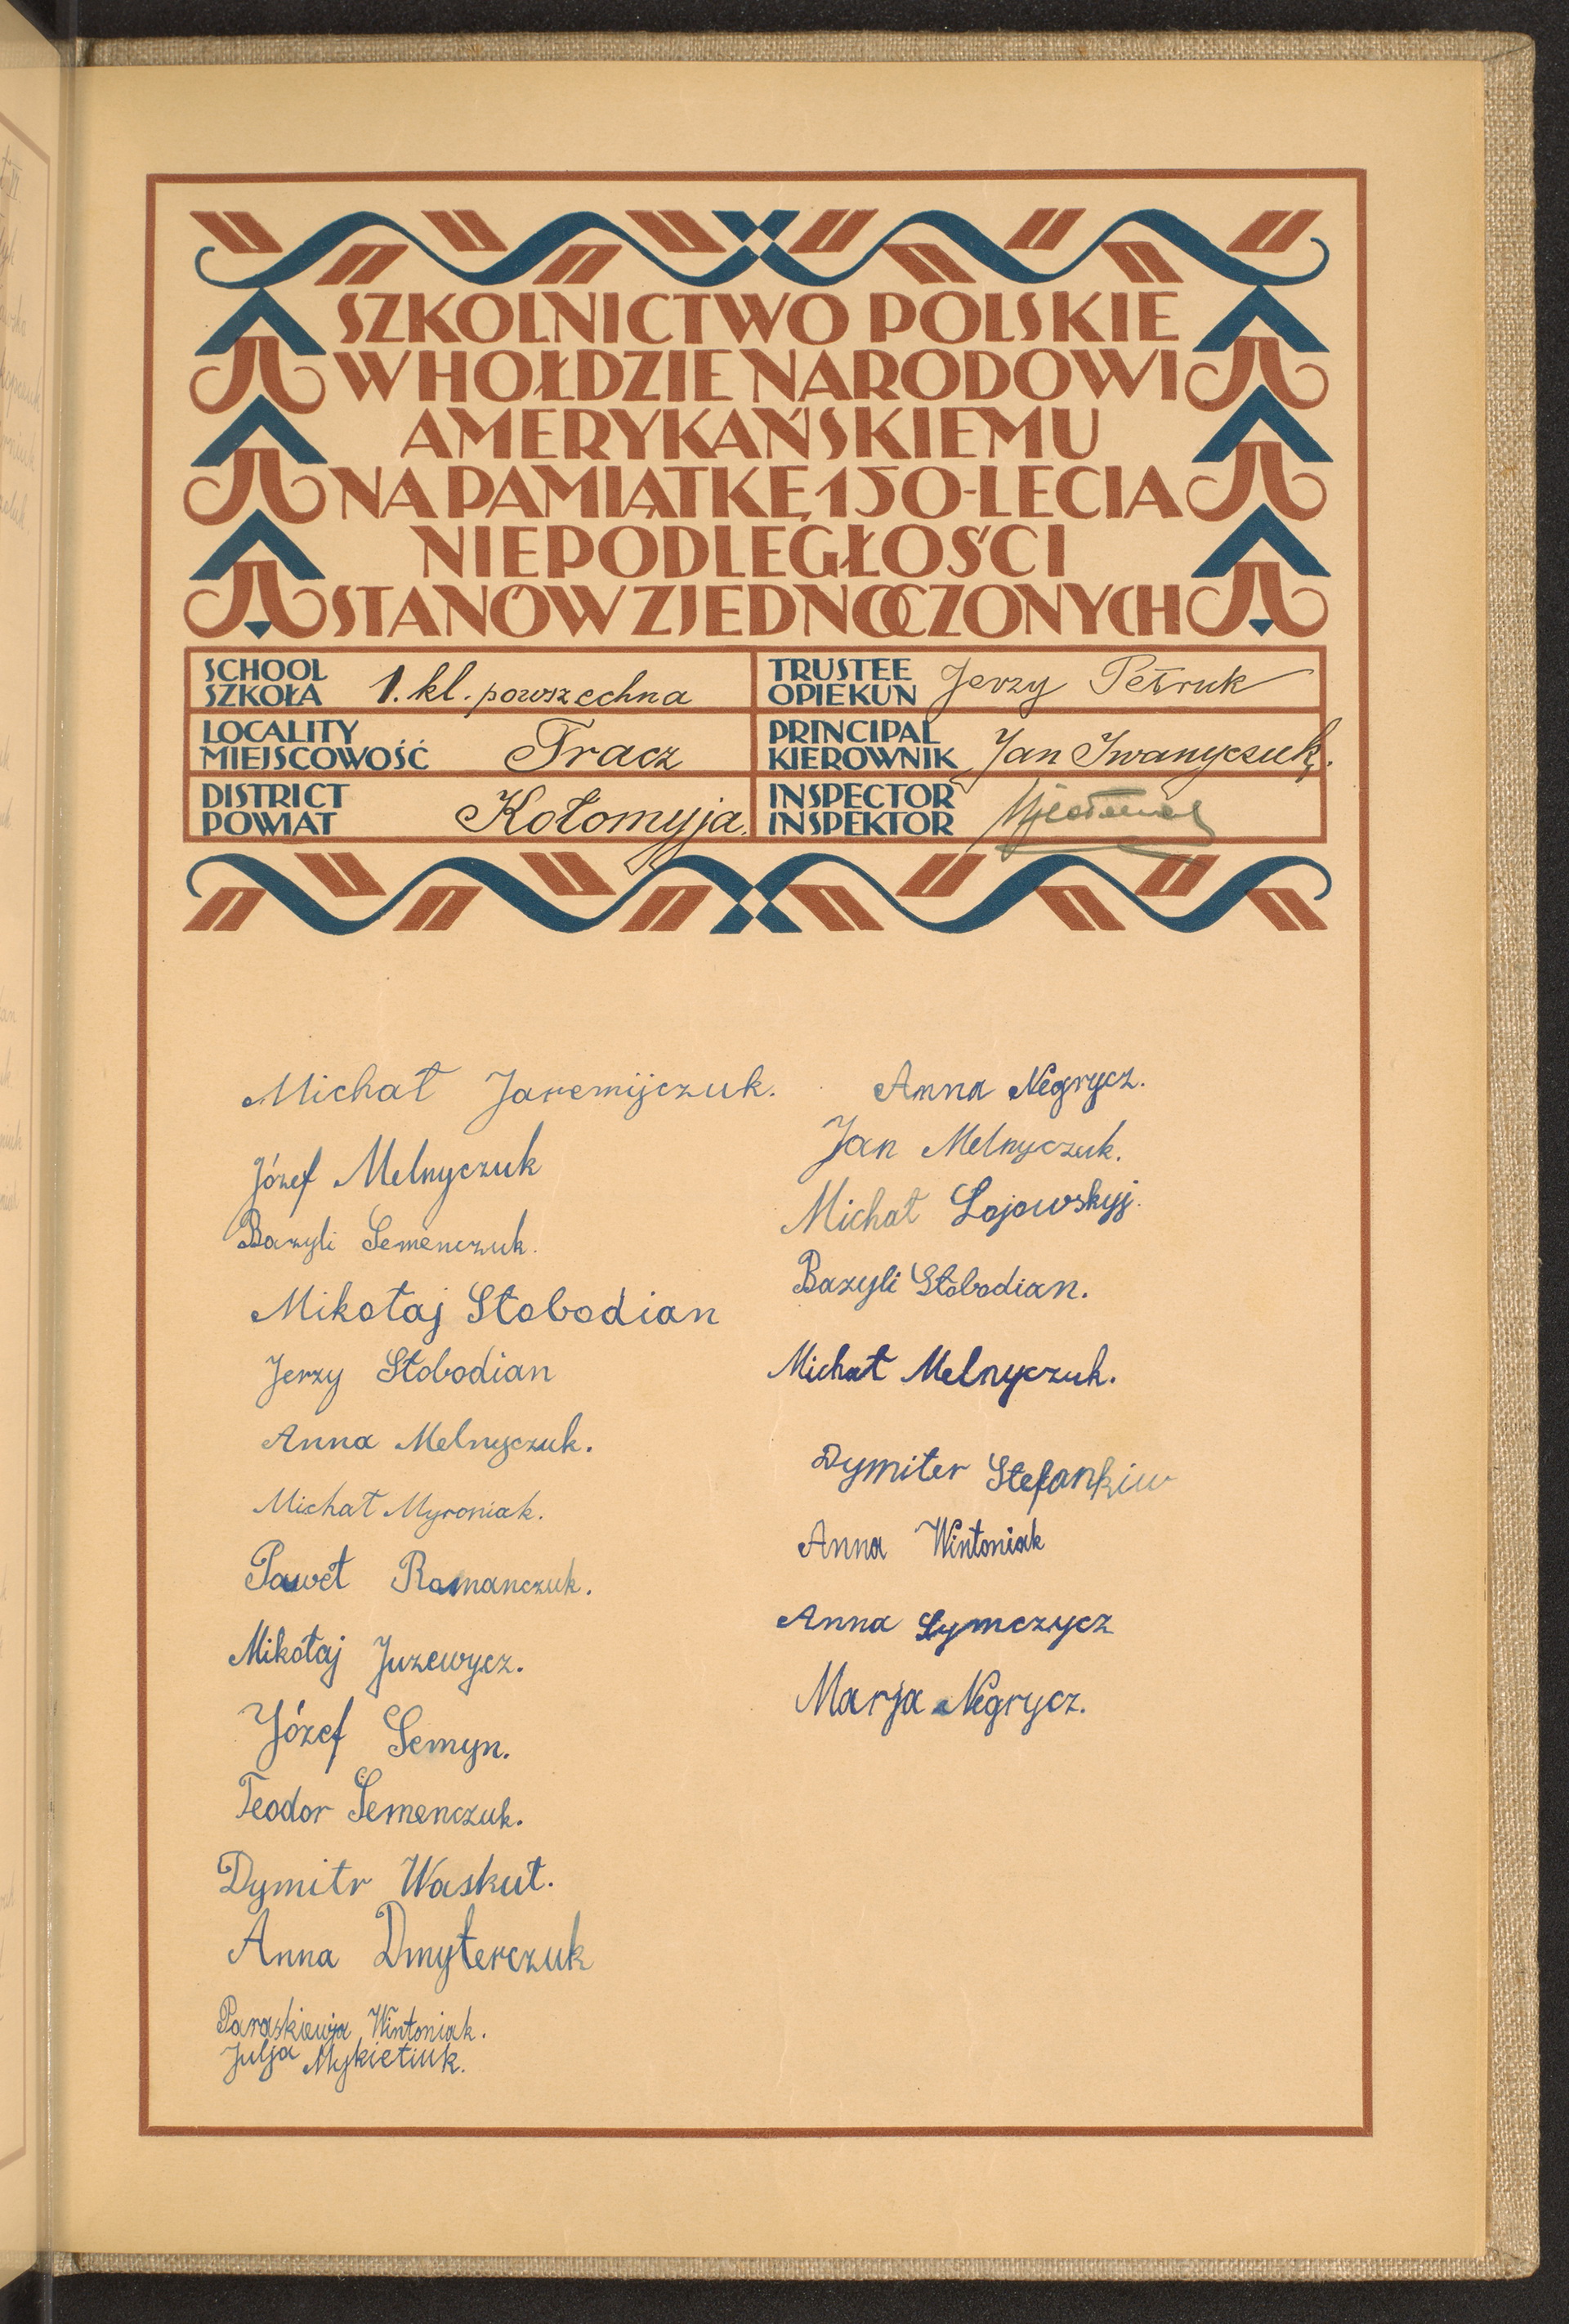 SZKOLNICTWO POLSKIE
W HOŁDZIE NARODOWI
AMERYKAŃSKIEMU
NA PAMIĄTKĘ 150-LECIA
NIEPODLEGŁOŚCI
STANÓW ZJEDNOCZONYCH
SCHOOL
SZKOŁA 1. kl. powszechna
TRUSTEE
OPIEKUN Jerzy Petruk
LOCALITY
MIEJSCOWOŚĆ Tracz
PRINCIPAL
KIEROWNIK Jan Iwanyczuk.
DISTRICT
POWIAT Kołomyja.
INSPECTOR
INSPEKTOR
Michał Jaremijczuk.
Józef Melnyczuk
Bazyli Semenczuk.
Mikołaj Słobodian
Jerzy Słobodian
Anna Melnyczuk.
Michał Myroniak.
Paweł Romanczuk.
Mikołaj Juzewycz.
Józef Semyn.
Teodor Semenczuk.
Dymitr Waskuł.
Anna Dmyterczuk
Paraskiewja Wintoniak.
Julja Mykietiuk.
Anna Negrycz.
Jan Melnyczuk.
Michał Łojowskyj.
Bazyli Słobodian.
Michał Melnyczuk.
Dymiter Stefankiw
Anna Wintoniak
Anna Symczycz
Marja Negrycz.